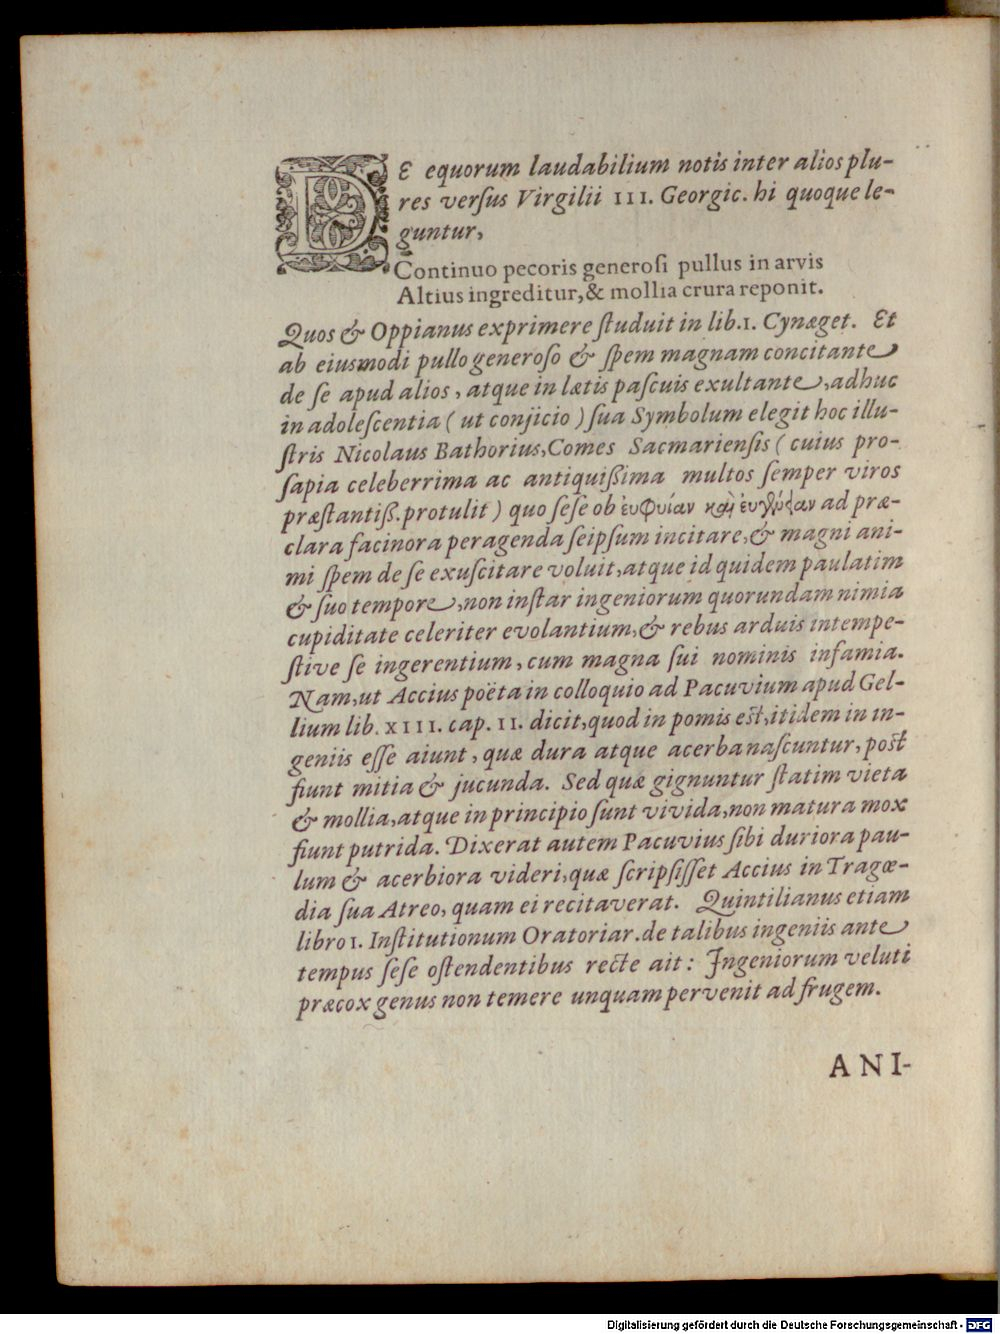 DE equorum laudabilium notis inter alios plu-
res verſus Virgilii III. Georgic. hi quoque le-
guntur,
Continuo pecoris generoſi pullus in arvis
Altius ingreditur, & mollia crura reponit.
Quos & Oppianus exprimere ſtuduit in lib. 1. Cynæget. Et
ab eiusmodi pullo generoſo & ſpem magnam concitante
de ſe apud alios, atque in lætis paſcuis exultante, adhuc
in adoleſcentia ( ut conjicio ) ſua Symbolum elegit hoc illu-
ſtris Nicolaus Bathorius, Comes Sacmarienſis ( cuius pro-
ſapia celeberrima ac antiquißima multos ſemper viros
præſtantiß. protulit ) quo ſeſe ob ἐυφυίαν καὶ ἐυεξίαν ad præ-
clara facinora peragenda ſeipſum incitare, & magni ani-
mi ſpem de ſe exuſcitare voluit, atque id quidem paulatim
& ſuo tempore, non inſtar ingeniorum quorundam nimia
cupiditate celeriter evolantium, & rebus arduis intempe-
ſtive ſe ingerentium, cum magna ſui nominis infamia.
Nam, ut Accius poëta in colloquio ad Pacuvium apud Gel-
lium lib. XIII. cap. II. dicit, quod in pomis eſt, itidem in in-
geniis eſſe aiunt, quæ dura atque acerba naſcuntur, poſt
fiunt mitia & jucunda. Sed quæ gignuntur ſtatim vieta
& mollia, atque in principio ſunt vivida, non matura mox
fiunt putrida. Dixerat autem Pacuvius ſibi duriora pau-
lum & acerbiora videri, quæ ſcripſiſſet Accius in Tragœ-
dia ſua Atreo, quam ei recitaverat. Quintilianus etiam
libro 1. Inſtitutionum Oratoriar. de talibus ingeniis ante
tempus ſeſe oſtendentibus recte ait: Ingeniorum veluti
præcox genus non temere unquam pervenit ad frugem.
ANI-
Digitalisierung gefördert durch die Deutsche Forschungsgemeinschaft - DFG